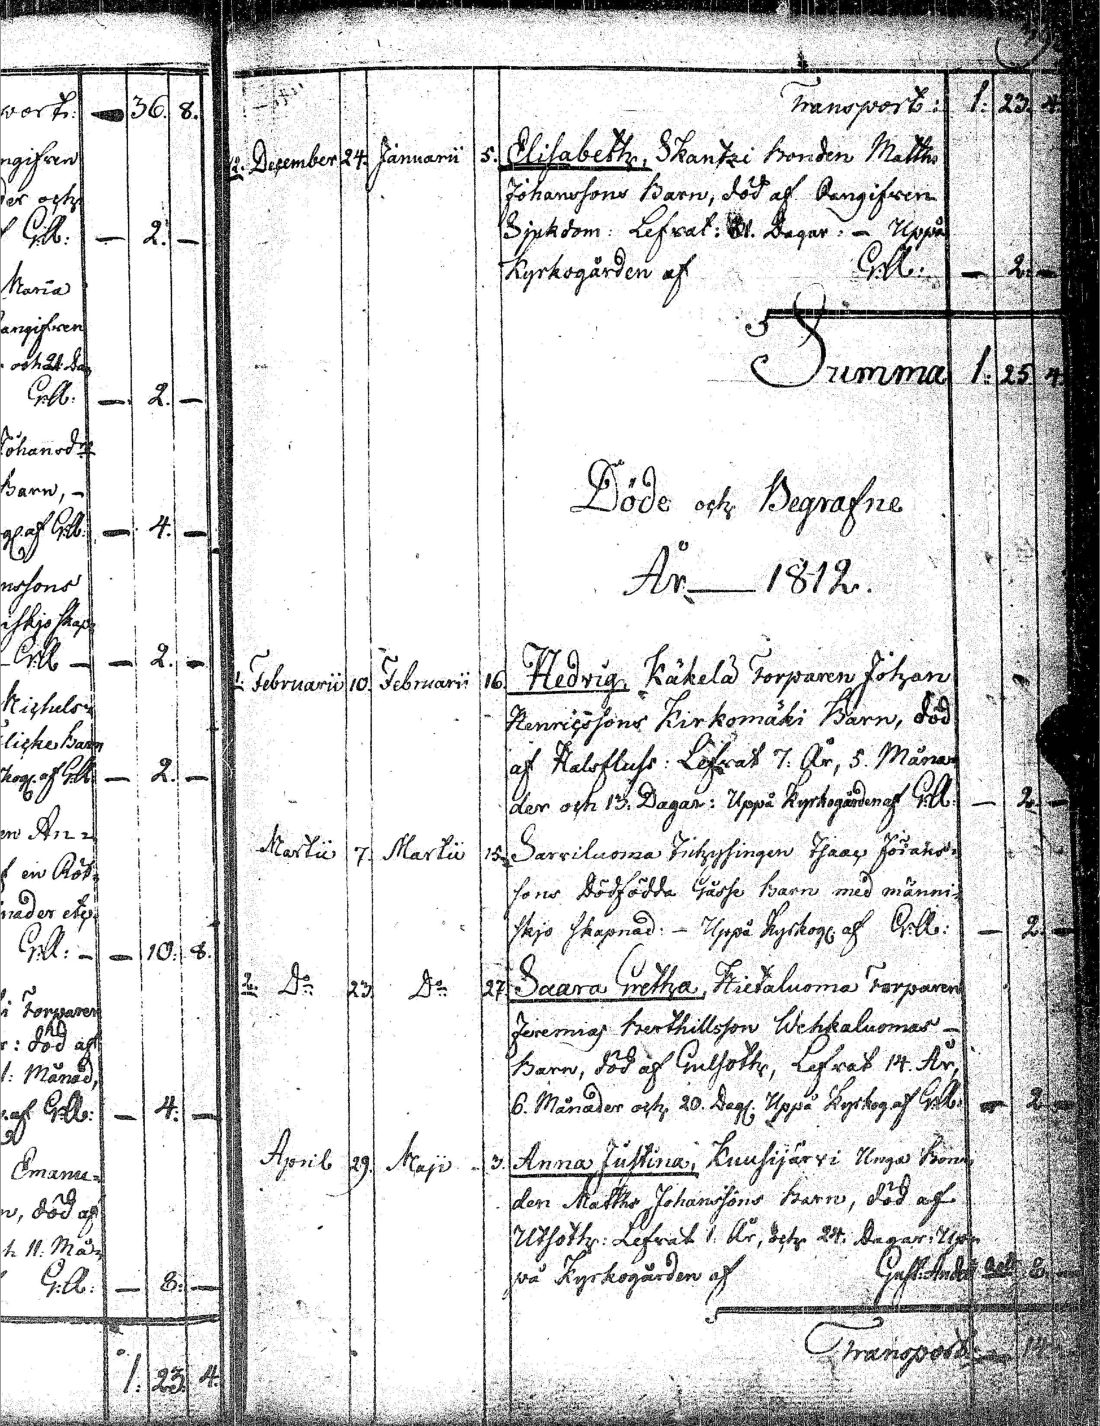 port: 36. 8.
angifven
der och
Gr:ll: — 2. —
Maria
angifven
och 21. Da
Gr:ll: — 2. —
Johansdr
Barn, –
af Gr:ll: — 4. —
nssons
iskjo skap
Gr:ll — — 2. —
Michels
licke Barn
kog. af Gr:ll: — 2. —
en An=
f en Röt
nader etc.
Gr:ll: — — 10. 8.
i Torparen
r: död af
1: Månad,
af Gr:ll: — 4. —
Emanu=
n, död af
h 11. Må=
Gr:ll: — 8. —
1. 23. 4.
Transport: 1: 23. 4.
12. December 24. Januarii 5. Elisabeth, Skantzi Bonden Matths
Johanssons Barn, död af Oangifven
Sjukdom: Lefvat: Dagar: — Uppå
Kyrkogården af Gr:ll: — 2. —
Summa 1: 25. 4.
Döde och Begrafne
År — 1812.
1. Februarii 10. Februarii 16. Hedvig, Käkelä Torparen Johan
Henricssons Kirkomäki Barn, död
af Halsfluss: Lefvat 7. År, 5. Måna=
der och 13. Dagar: Uppå Kyrkogården af Gr:ll: — 2. —
Martii 7. Martii 15. Sarviluoma Inhysingen Isaac Johans=
sons Dödfödda Gåsse Barn med männi=
skjo skapnad: — Uppå Kyrkog: af Gr:ll: — 2. —
2. Do 23. Do 27. Saara Gretha, Hietaluoma Torparen
Jeremias Berthillsson Wehkaluomas —
Barn, död af Gulsoth, Lefvat 14. År,
6. Månader och 20. Dag: Uppå Kyrkog. af Gr:ll: — 2. —
April 29. Maji 3. Anna Justina, Kuusijärvi Unga Bon=
den Matths Johanssons Barn, död af
Utsoth: Lefvat 1. År, och 24. Dagar: Up=
på Kyrkogården af
Transport —